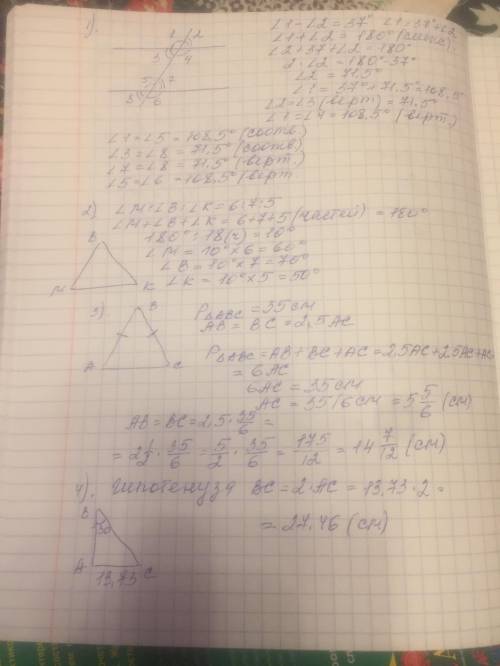 1).
1 2
3 4
5 7
8 6
∠1 - ∠2 = 37° ∠1 = 37° + ∠2
∠1 + ∠2 = 180° (смежн).
∠2 + 37 + ∠2 = 180°
2·∠2 = 180° - 37°
∠2 = 71,5°
∠1 = 37° + 71,5° = 108,5°
∠2 = ∠3 (верт) = 71,5°
∠1 = ∠4 = 108,5° (верт.)
∠1 = ∠5 = 108,5° (соотв.)
∠3 = ∠8 = 71,5° (соотв)
∠7 = ∠8 = 71,5° (верт.)
∠5 = ∠6 = 108,5° верт.
2) ∠M:∠B:∠K = 6:7:5
∠M + ∠B + ∠K = 6+7+5 (частей) = 180°
180° : 18(ч) = 10°
∠M = 10° × 6 = 60°
∠B = 10° × 7 = 70°
∠K = 10° × 5 = 50°
B
M K
3)
B
A C
P△ABC = 35 см
AB = BC = 2,5 AC
P△ABC = AB + BC + AC = 2,5AC + 2,5AC + AC
= 6AC
6AC = 35 см
AC = 35/6 см = 5 5/6 (см)
AB = BC = 2,5 · 35/6 =
= 2 1/2 · 35/6 = 5/2 · 35/6 = 175/12 = 14 7/12 (см)
4). гипотенуза BC = 2·AC = 13,73·2 =
= 27,46 (см)
B
30
A 13,73 C